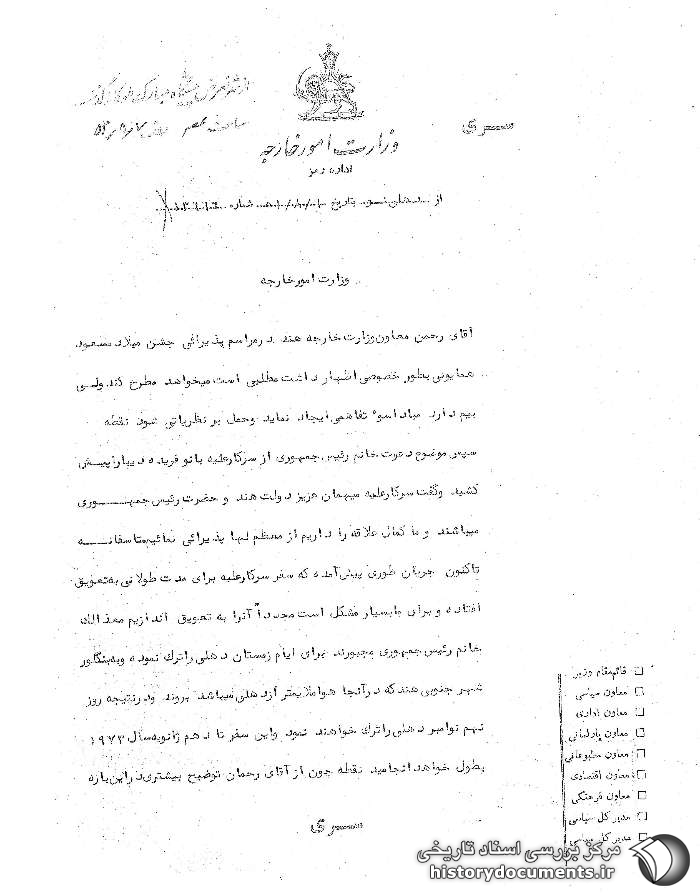 سری
وزارت امور خارجه
اداره رمز
از دهلی نو بتاریخ شماره
وزارت امور خارجه
آقای رحمن معاون وزارت خارجه هند در مراسم پذیرائی جشن میلاد مسعود
همایونی بطور خصوصی اظهار داشت مطلبی است میخواهد مطرح کند ولی
بیم دارد مبادا سوء تفاهمی ایجاد نماید وحمل بر نظریاتی شود نقطه
سپس موضوع دعوت خانم رئیس جمهوری از سرکارعلیه بانو فریده دیبا را پیش
کشید وگفت سرکارعلیه میهمان عزیز دولت هند و حضرت رئیس جمهوری
میباشند و ما کمال علاقه را داریم از معظم لها پذیرائی نمائیم متاسفانه
تاکنون جریان طوری پیش آمده که سفر سرکارعلیه برای مدت طولانی به تعویق
افتاده و برای ما بسیار مشکل است مجدداً آنرا به تعویق اندازیم معذالک
خانم رئیس جمهوری مجبورند برای ایام زمستان دهلی را ترک نموده و به بنگلور
شهر جنوبی هند که در آنجا هوا ملایمتر از دهلی میباشد بروند ودرنتیجه روز
نهم نوامبر دهلی را ترک خواهند نمود واین سفر تا دهم ژانویه سال ۱۹۷۳
بطول خواهد انجامید نقطه چون از آقای رحمان توضیح بیشتری دراین باره
سری
قائم مقام وزیر
معاون سیاسی
معاون اداری
معاون پارلمانی
معاون مطبوعاتی
معاون اقتصادی
معاون فرهنگی
مدیر کل سیاسی
مدیر کل سیاسی
مرکز بررسی اسناد تاریخی
historydocuments.ir